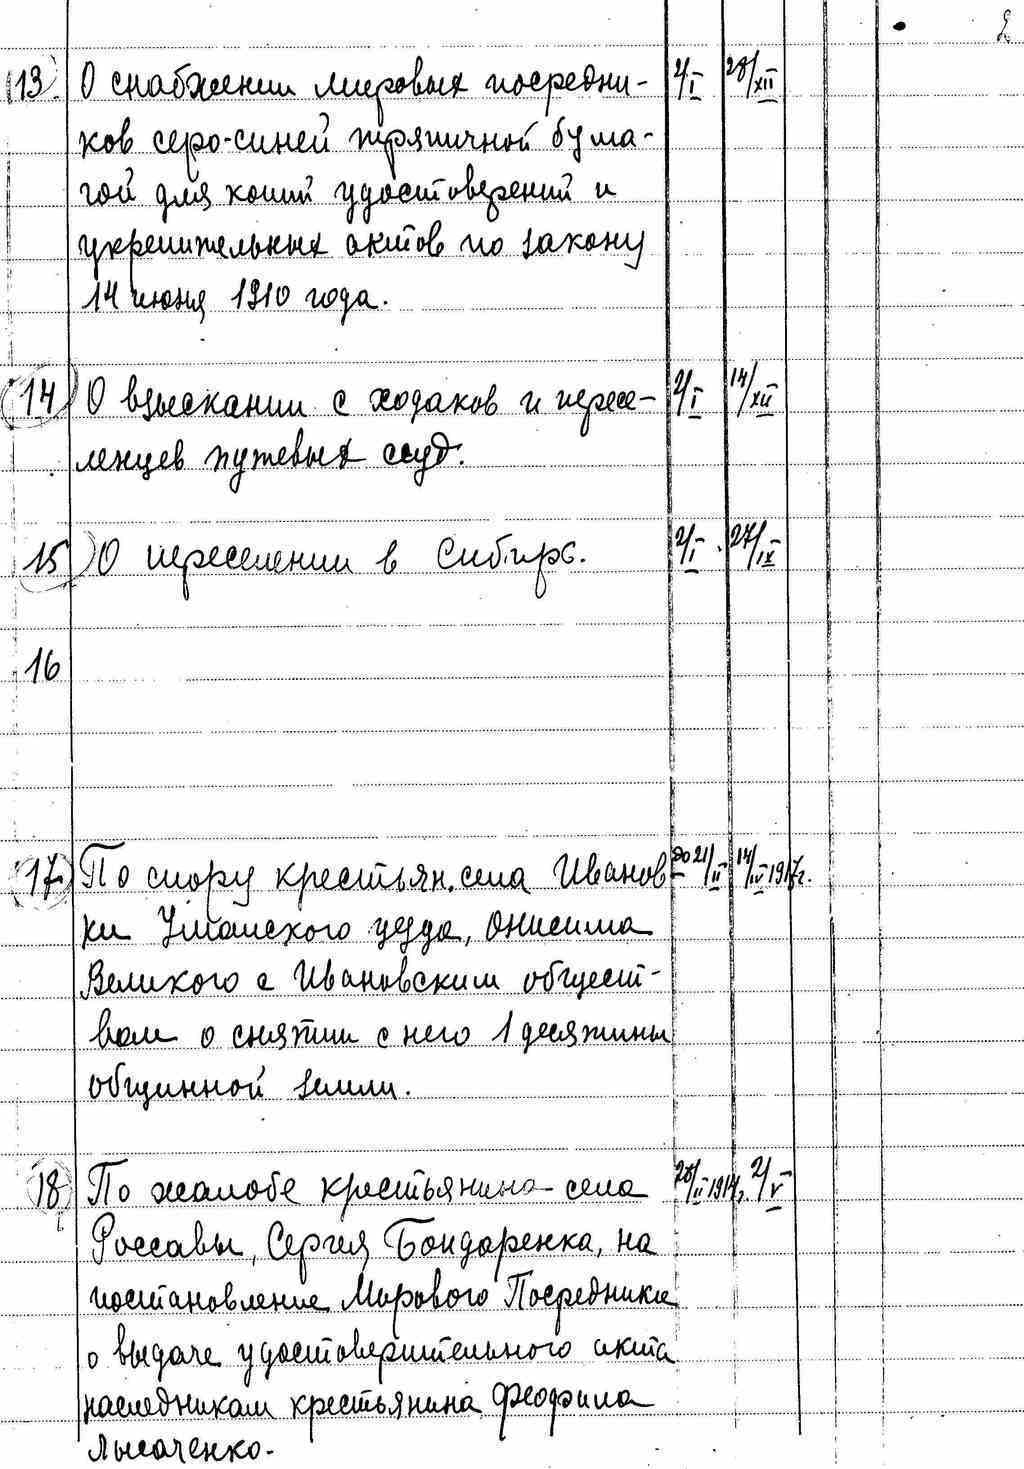 13. О снабжении мировых посредни- 2/I 28/XII
ков серо-синей тряпичной бума-
гой для копий удостоверений и
укрепительных актов по закону
14 июня 1910 года.
14 О взыскании с ходаков и пересе- 2/I 14/XII
ленцев путевых ссуд.
15 О переселении в Сибирь. 2/I 27/IX
16
17 По спору крестьян. села Иванов 21/II 14/IV 1917г.
ки Уманского уезда, Онисима
Великого с Ивановским общест-
вом о снятии с него 1 десятины
общинной земли.
18 По жалобе крестьянина села 28/II 1914г. 2/V
Россавы, Сергея Бондаренка, на
постановление Мирового Посредника
о выдаче удостоверительного акта
наследникам крестьянина Феофила
Лысаченко.